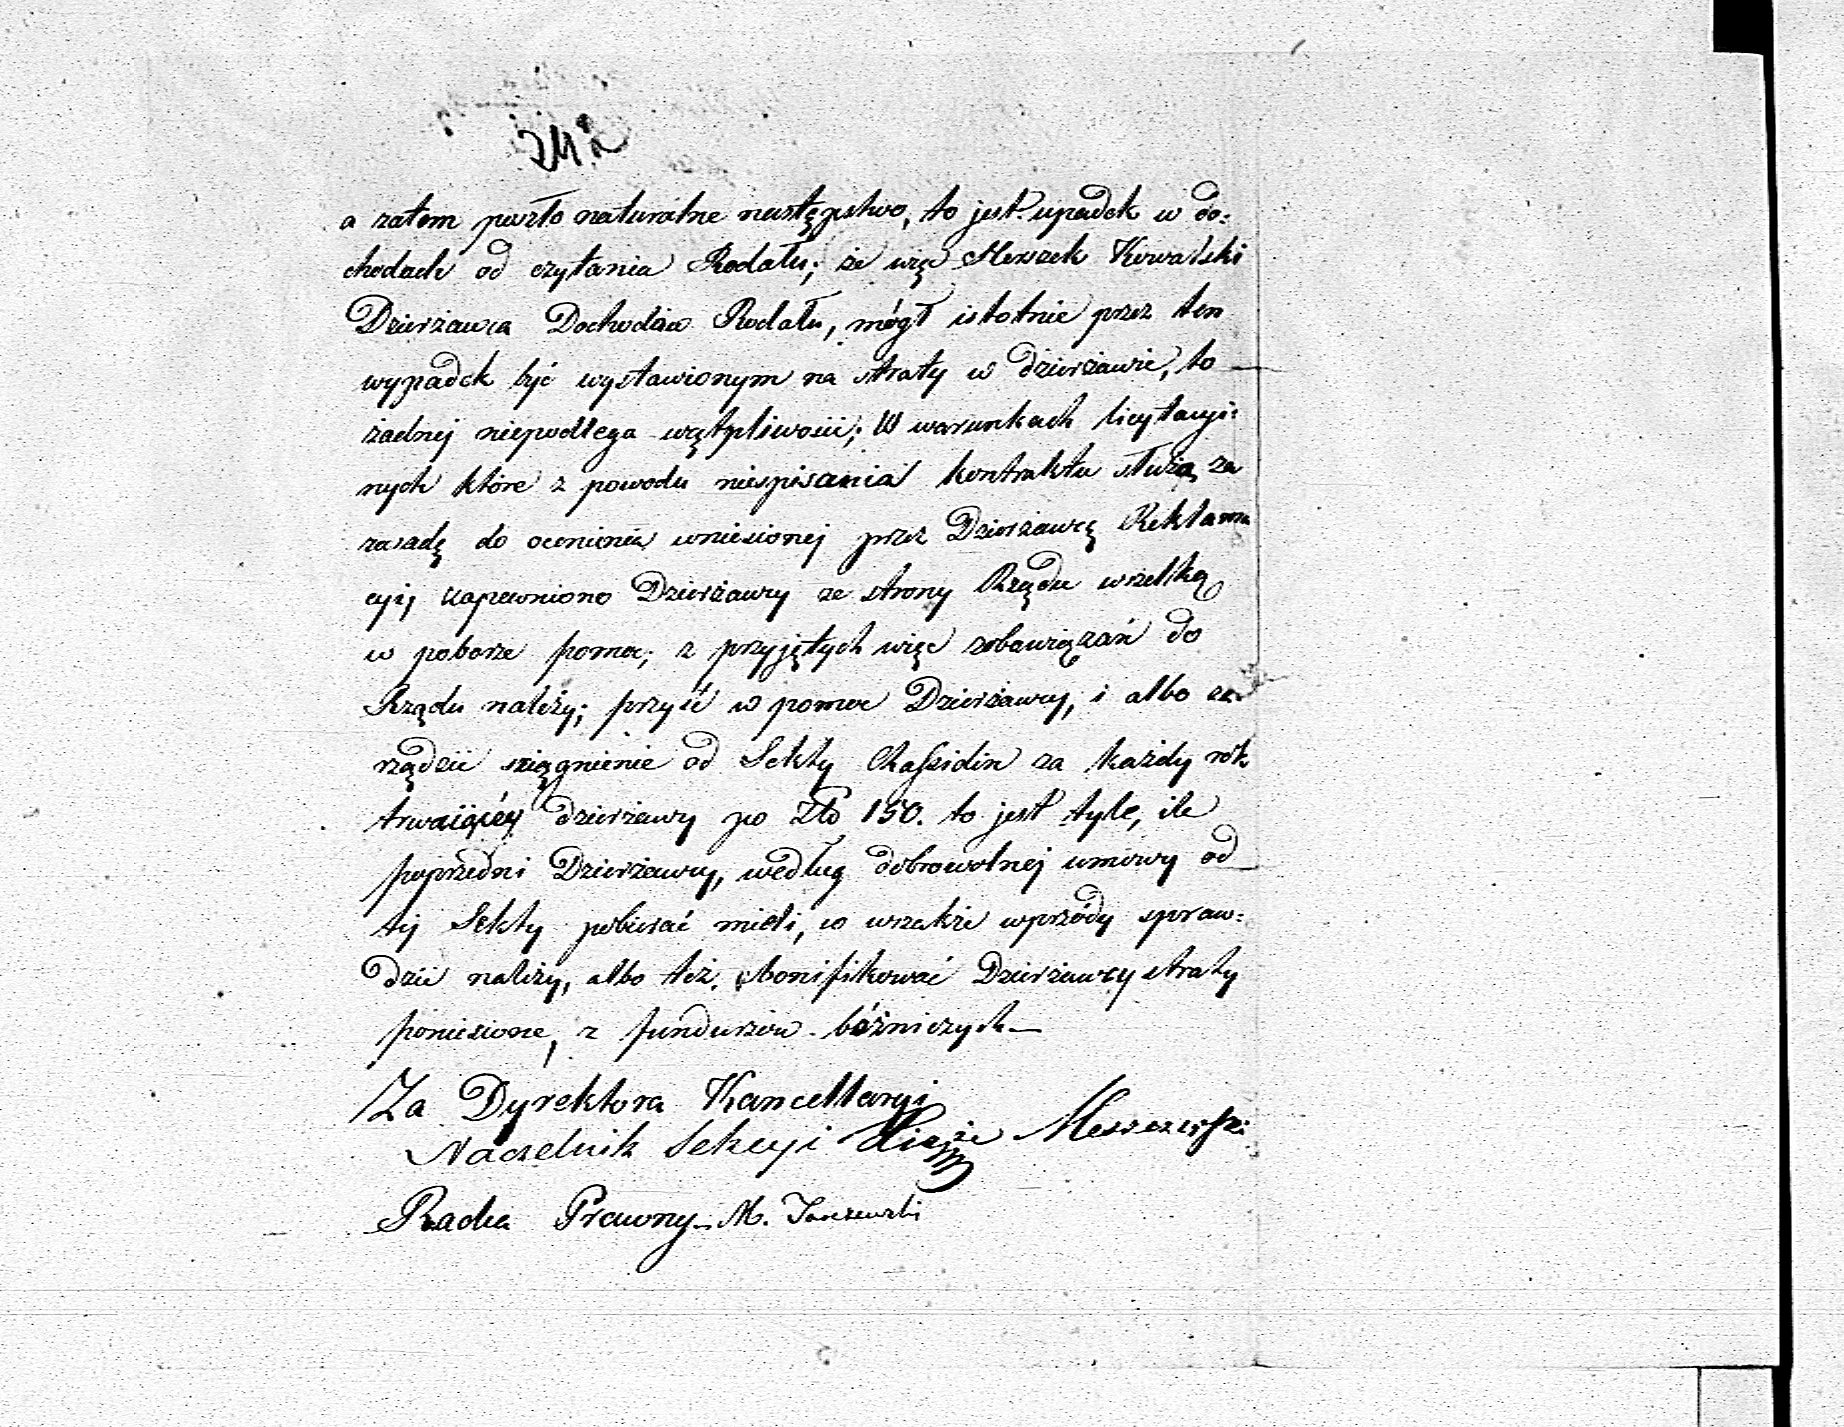 a zatem poszło naturalne następstwo, to jest upadek w do=
chodach od czytania Rodału; że więc Herszek Kowalski
Dzierżawca Dochodów Rodału, mógł istotnie przez ten
wypadek być wystawionym na straty w dzierżawie, to
żadnej niepodlega wątpliwości; W warunkach licytacyi=
nych które z powodu niespisania kontraktu służą za
zasadę do ocenienia wniesionej przez Dzierżawcę Reklama
cyi, zapewniono Dzierżawcy ze strony Rządu wszelką
w poborze pomoc; z przyjętych więc zobowiązań do
Rządu należy; przyść w pomoc Dzierżawcy, i albo za
rządzić ściągnienie od Sekty Chassidin za każdy rok
trwaiącéy dzierżawy po Złp 150. to jest tyle, ile
poprzedni Dzierżawcy, według dobrowolnej umowy od
tej Sekty pobierać mieli, co wszakże wprzódy spraw=
dzić należy, albo też, zbonifikować Dzierżawcy straty
poniesione, z funduszów bóżniczych —
Za Dyrektora Kancellaryi
Naczelnik Sekcyi
Radca Prawny M.